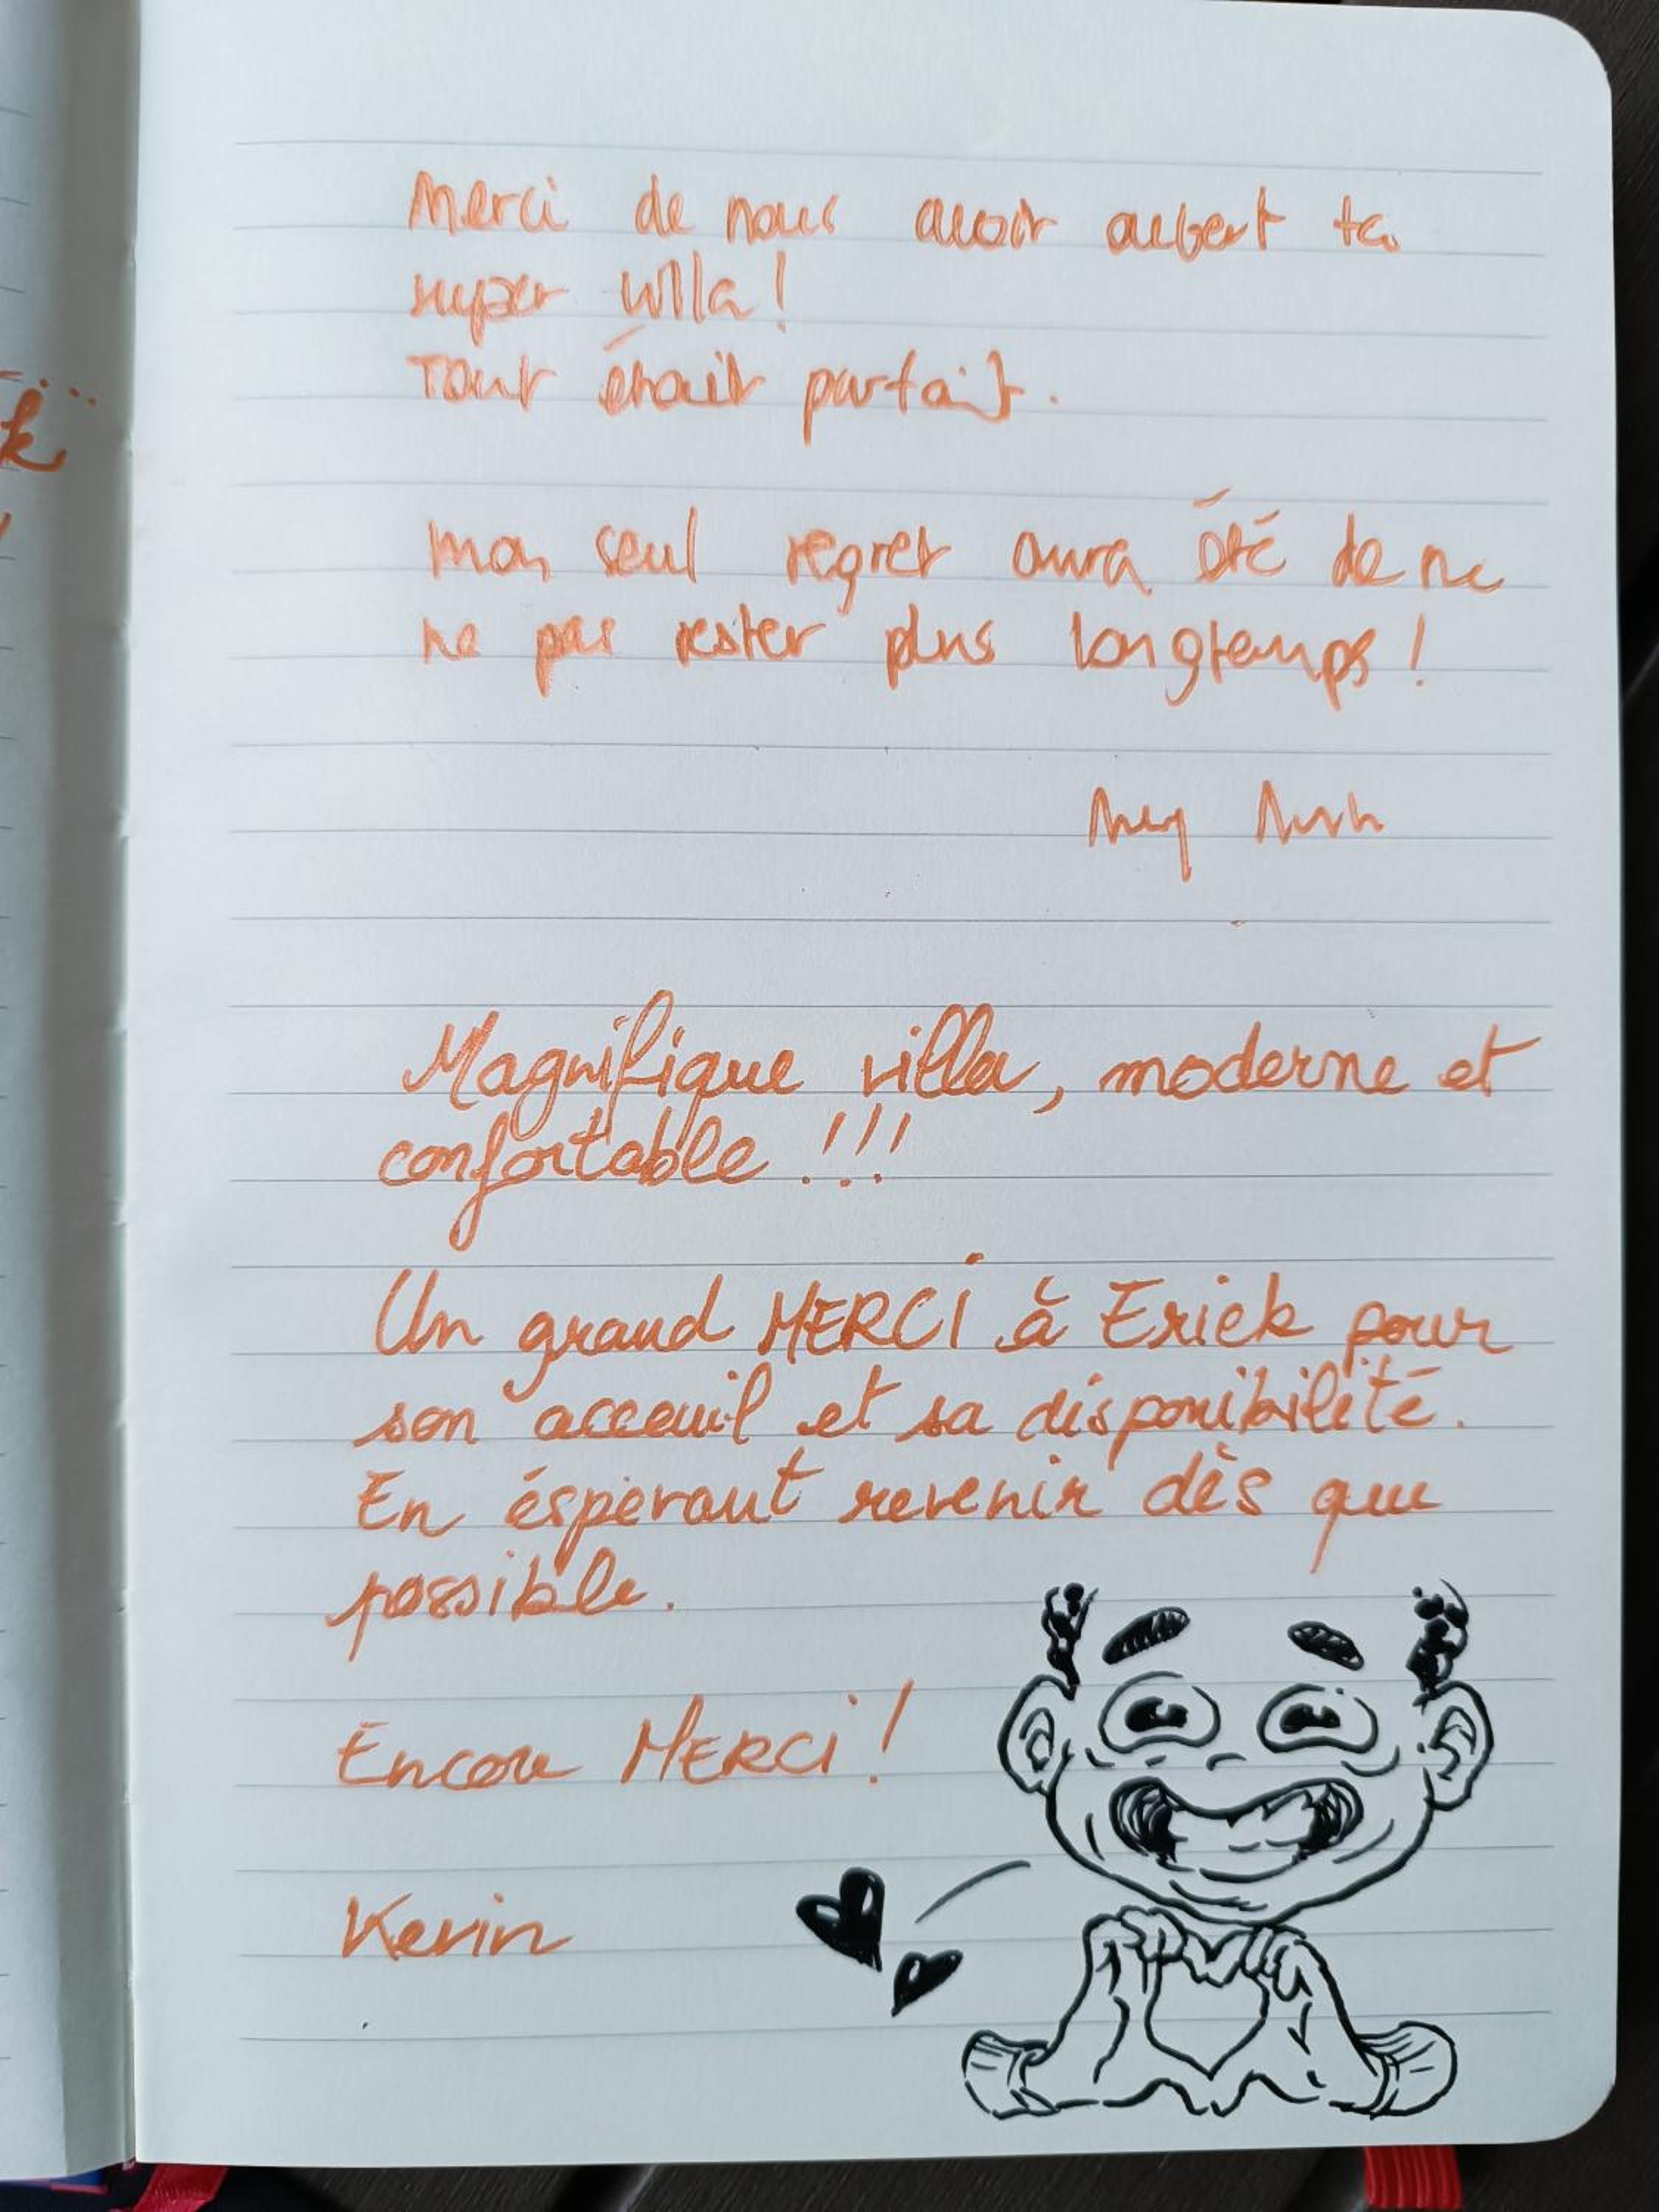 Merci de nous avoir ouvert ta
super villa !
Tout était parfait.
Mon seul regret aura été de ne
ne pas rester plus longtemps !
Magnifique villa, moderne et
confortable !!!
Un grand MERCI à Erick pour
son acceuil et sa disponibilité.
En ésperant revenir dès que
possible.
Encore MERCI !
Kevin